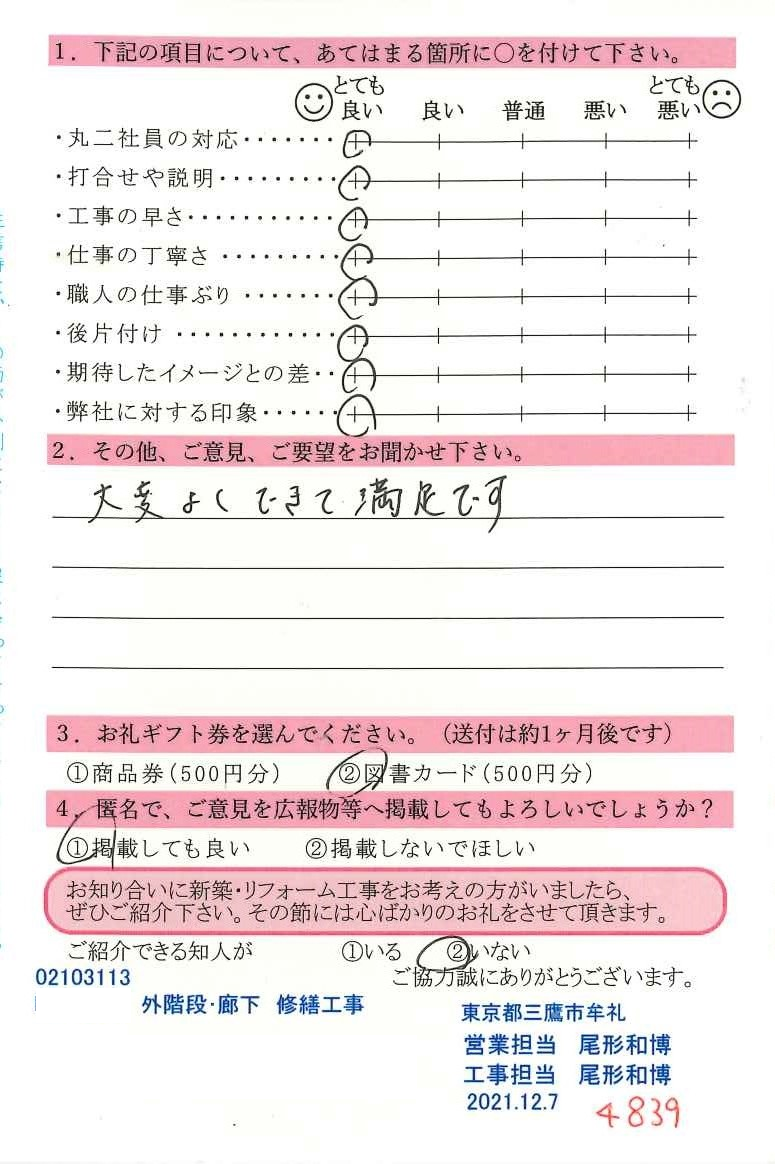 1．下記の項目について、あてはまる箇所に○を付けて下さい。
とても良い 良い 普通 悪い とても悪い
・丸二社員の対応・・・・・・・
・打合せや説明・・・・・・・・・
・工事の早さ・・・・・・・・・・・
・仕事の丁寧さ・・・・・・・・・
・職人の仕事ぶり・・・・・・・
・後片付け・・・・・・・・・・・・
・期待したイメージとの差・・
・弊社に対する印象・・・・・・
2．その他、ご意見、ご要望をお聞かせ下さい。
大変よくできて満足です
3．お礼ギフト券を選んでください。（送付は約1ヶ月後です）
①商品券（500円分） ②図書カード（500円分）
4．匿名で、ご意見を広報物等へ掲載してもよろしいでしょうか？
①掲載しても良い ②掲載しないでほしい
お知り合いに新築・リフォーム工事をお考えの方がいましたら、
ぜひご紹介下さい。その節には心ばかりのお礼をさせて頂きます。
ご紹介できる知人が ①いる ②いない
02103113 ご協力誠にありがとうございます。
外階段・廊下 修繕工事 東京都三鷹市牟礼
営業担当 尾形和博
工事担当 尾形和博
2021.12.7
4839